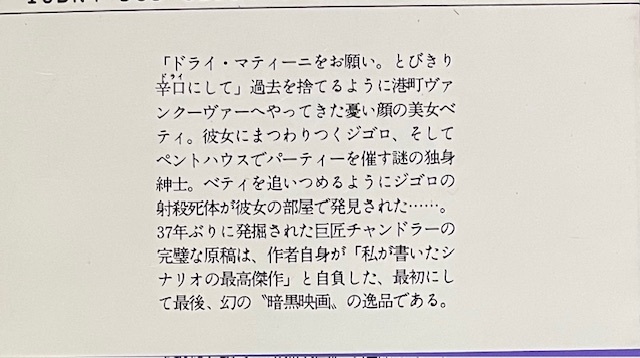 「ドライ・マティーニをお願い。とびきり
ドライ
辛口にして」過去を捨てるように港町ヴァ
ンクーヴァーへやってきた憂い顔の美女ベ
ティ。彼女にまつわりつくジゴロ、そして
ペントハウスでパーティーを催す謎の独身
紳士。ベティを追いつめるようにジゴロの
射殺死体が彼女の部屋で発見された……。
37年ぶりに発掘された巨匠チャンドラーの
完璧な原稿は、作者自身が「私が書いたシ
ナリオの最高傑作」と自負した、最初にし
て最後、幻の〝暗黒映画〟の逸品である。